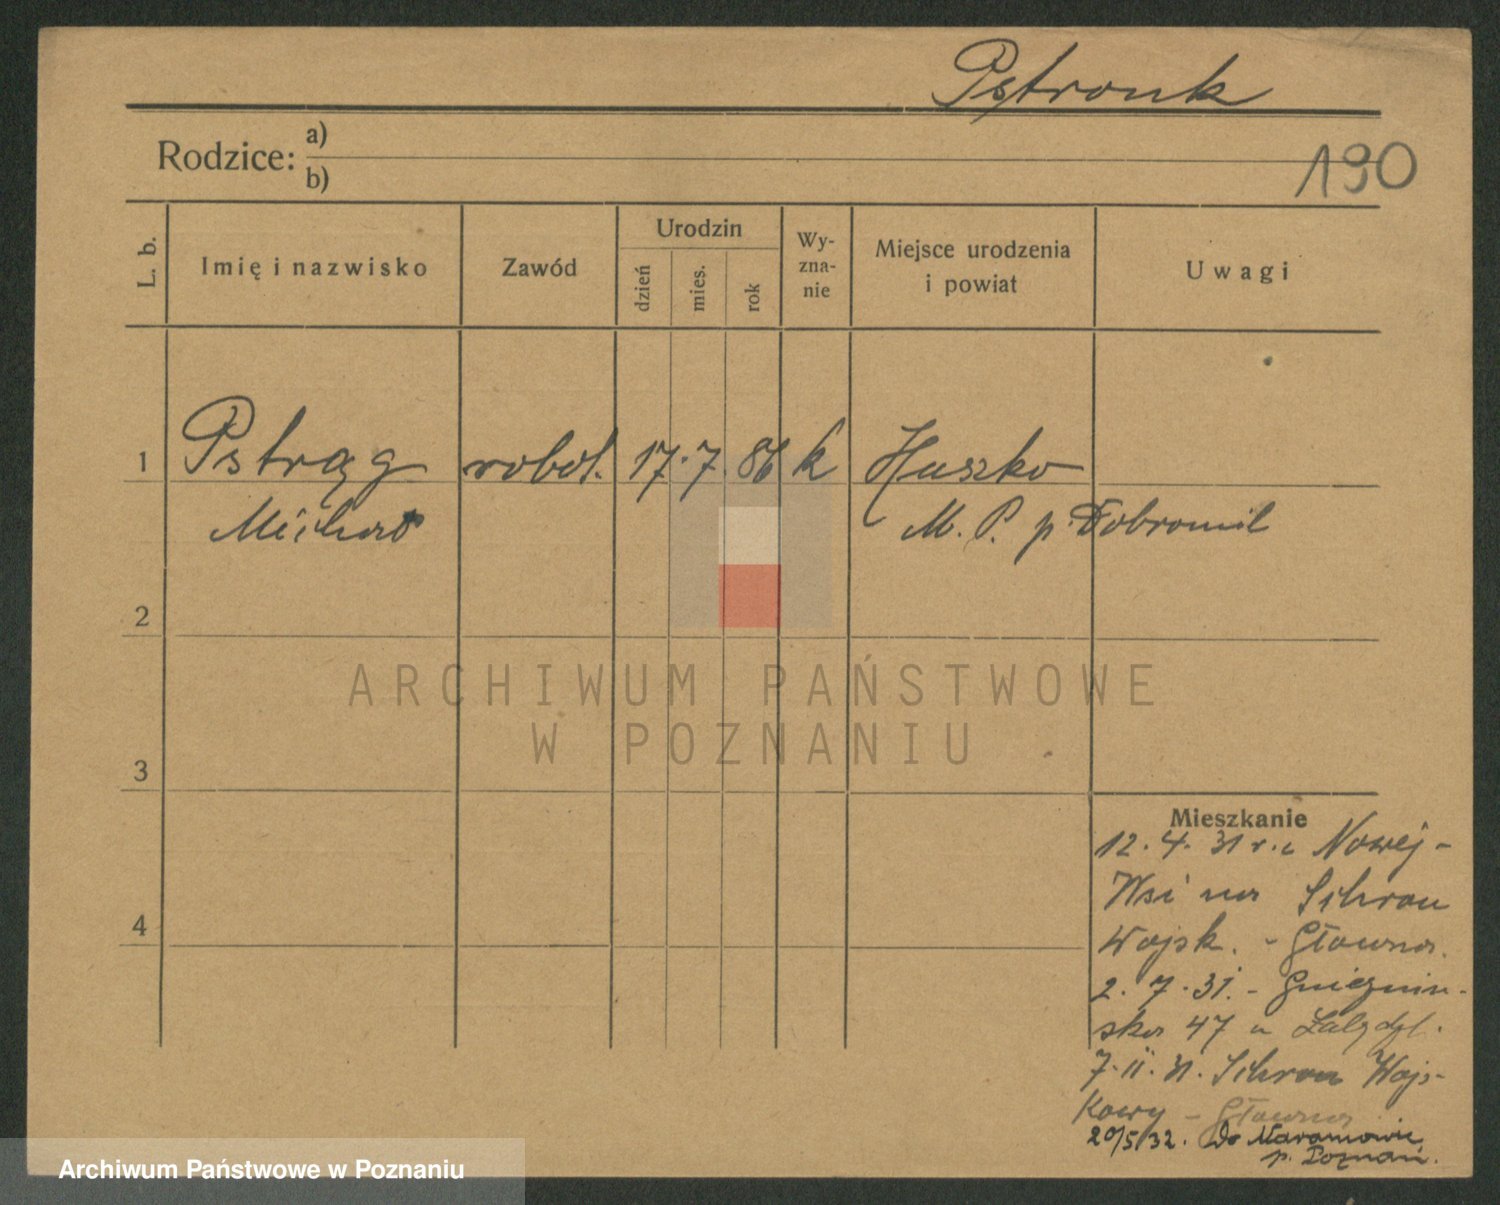 Pstronk
Rodzice: a)
b)
190
L. b.
Imię i nazwisko
Zawód
Urodzin
dzień
mies.
rok
Wy-
zna-
nie
Miejsce urodzenia
i powiat
Uwagi
1 Pstrąg robot. 17. 7. 86 k Huszko
Michał M. P. p. Dobromil
2
ARCHIWUM PAŃSTWOWE
W POZNANIU
3
Mieszkanie
12. 4. 31 r. z Nowej-
Wsi na Schron
Wojsk. - Główna.
2. 7. 31. - Gnieźnień-
ska 47 u
4
7. 11. 31. Schron Wojs-
kowy - Główna
20/5 32. Do Naramowic
p. Poznań.
Archiwum Państwowe w Poznaniu